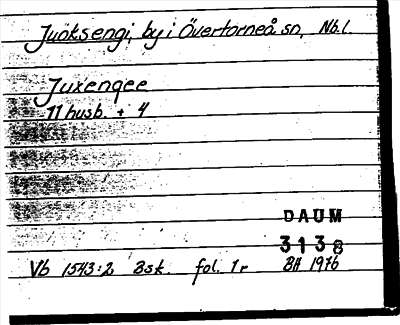 Juoksengi, by i Övertorneå sn, Nb.l.
Juxengee
11 husb. + 4
DAUM
3138
Vb 1543:2 Bsk. fol. 1r BH 1976